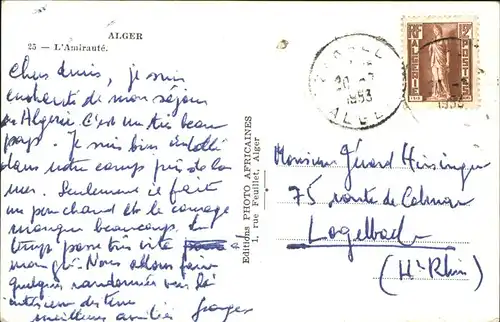 ALGER
25 - L'Amirauté.
Chers amis, je suis
enchanté de mon séjour
en Algérie. C'est un très beau
pays. Je suis bien installé
dans notre camp près de la
mer. Seulement il fait
un peu chaud et le courage
manque beaucoup. Le
temps passe très vite
Nous allons faire
quelques randonnées vers l'
intérieur des terres
meilleures amitiés Georges
Editions PHOTO AFRICAINES
1, rue Feuillet, Alger
20
1953
ALGER
ALGERIE
POSTES
1953
Monsieur Gérard Hissinger
75 route de Colmar
Logelbach
(Ht Rhin)